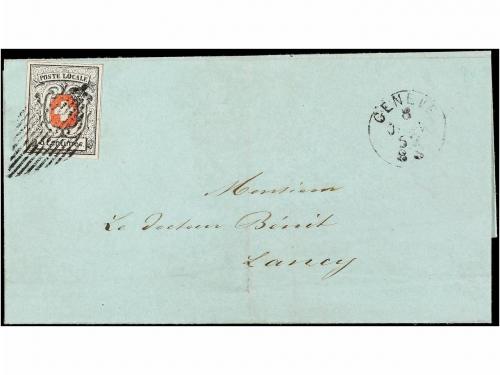 POSTE LOCALE
GENÈVE
8
Monsieur
Le docteur Bénit
Lancy